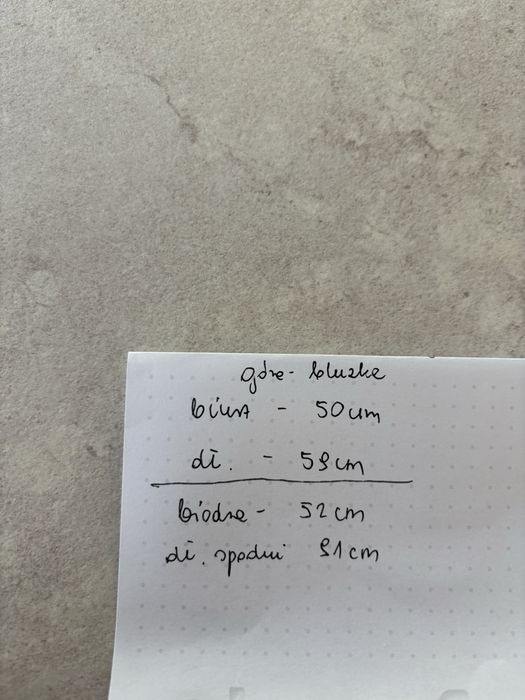 góra - bluzka
biust - 50 cm
dł. - 59 cm
biodra - 52 cm
dł. spodni 91 cm